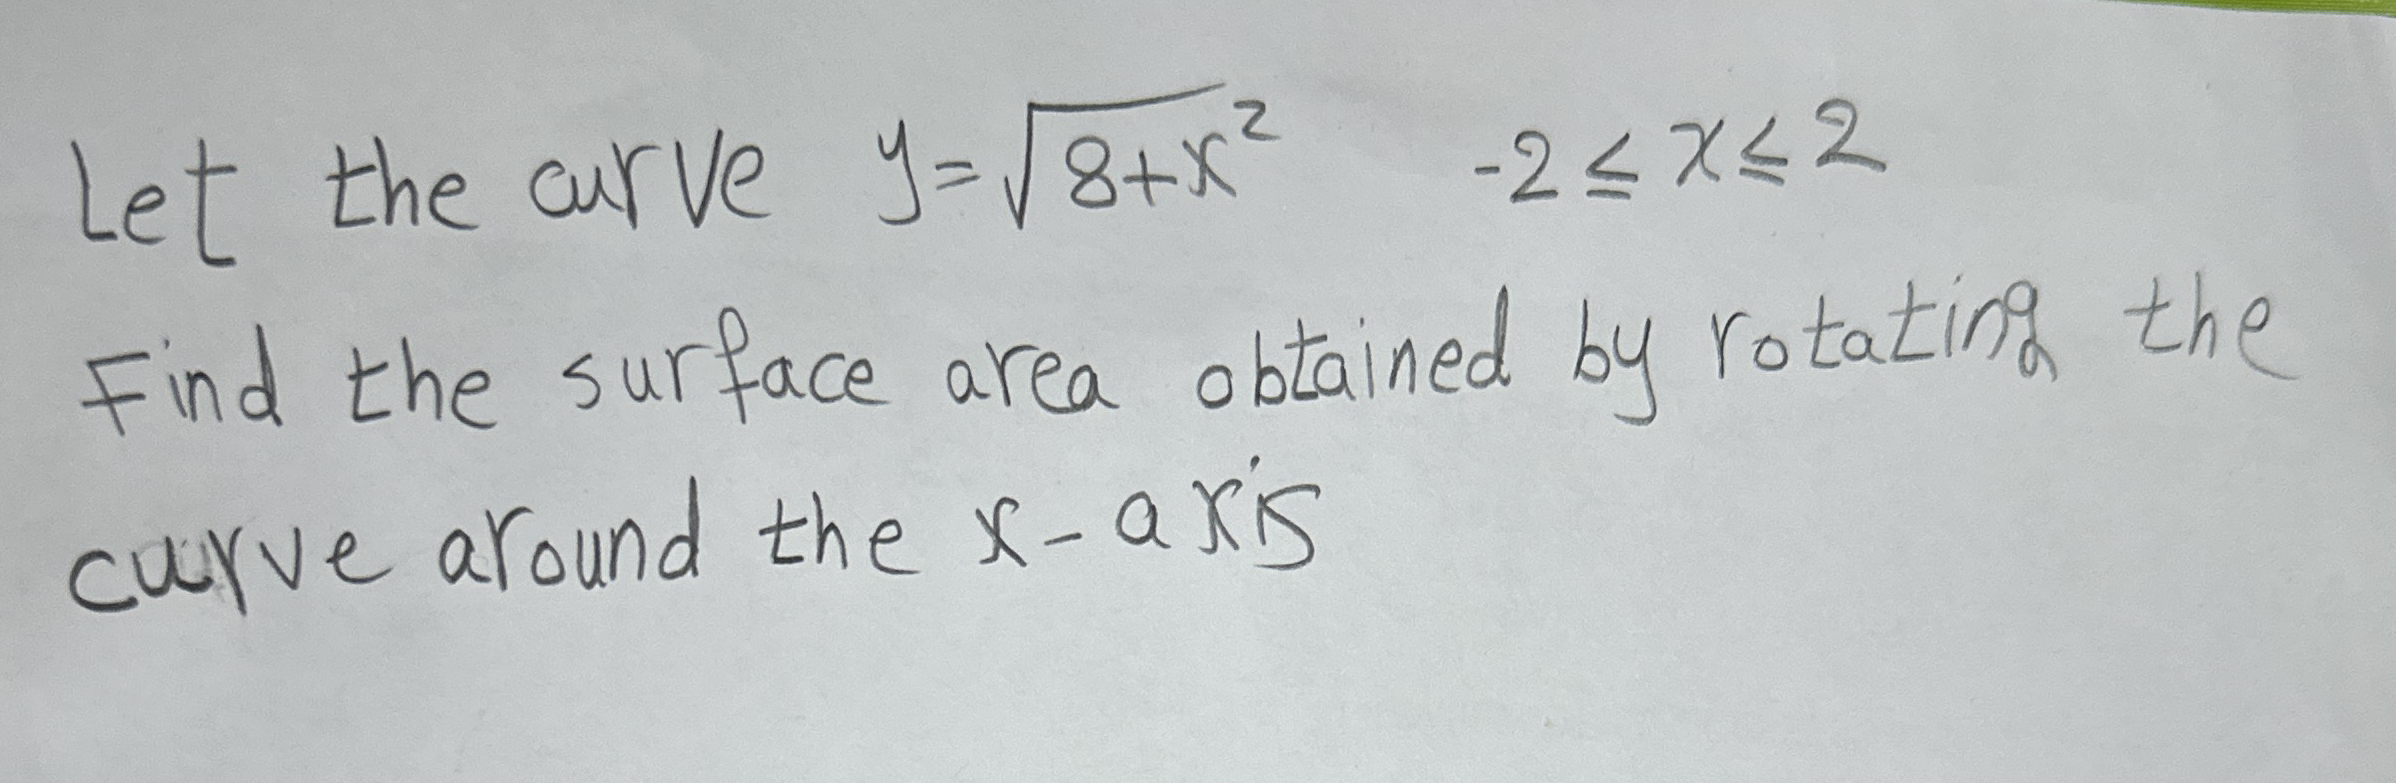 Let the curve y=√8+x² -2≤x≤2
Find the surface area obtained by rotating the
curve around the x-axis